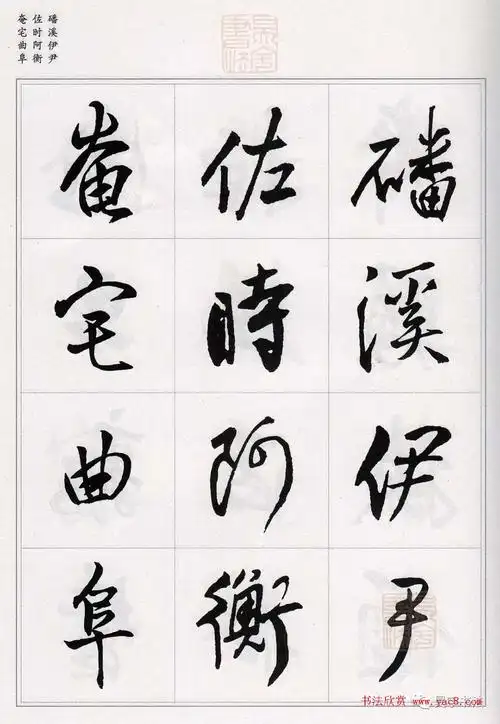 磻溪伊尹
佐时阿衡
奄宅曲阜
磻溪伊尹
佐時阿衡
奄宅曲阜
书法欣赏 www.yac8.com